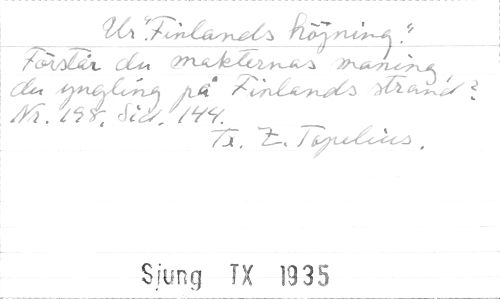 Ur "Finlands höjning."
Förstår du makternas maning,
du yngling på Finlands strand?
Nr. 198, Sid. 144.
Tr. Z. Topelius.
Sjung TX 1935